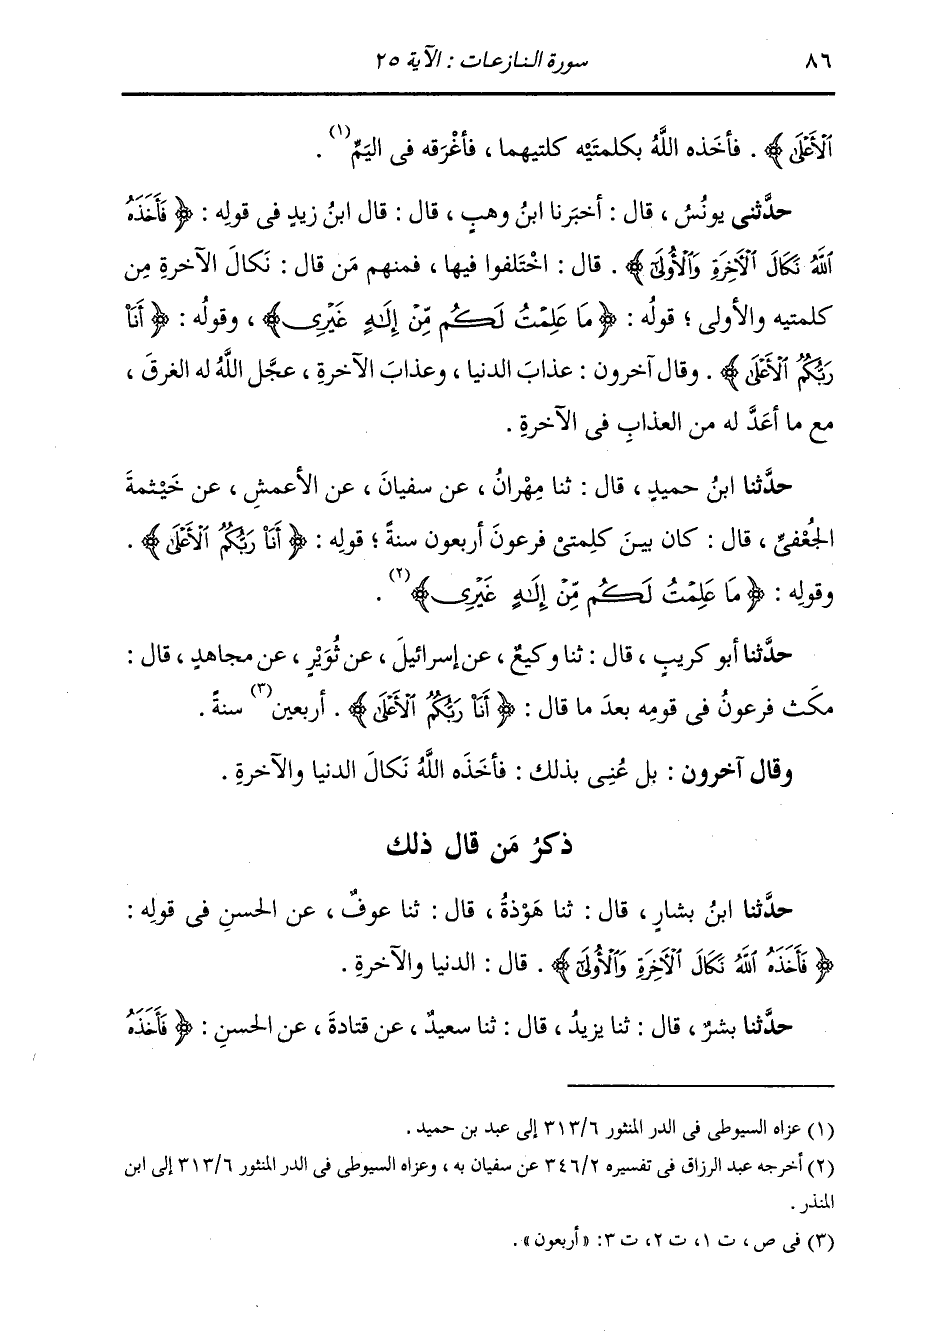 ٨٦ سورة النازعات : الآية ٢٥
ٱلْأَعْلَىٰ ﴾ . فأخَذه اللَّهُ بكلمتَيْه كلتيهما ، فأغْرَقه فى اليَمِّ(١) .
حدَّثنى يونُسُ ، قال : أخبَرنا ابنُ وهبٍ ، قال : قال ابنُ زيدٍ فى قولِه : ﴿ فَأَخَذَهُ
ٱللَّهُ نَكَالَ ٱلْآخِرَةِ وَٱلْأُولَىٰٓ ﴾ . قال : اخْتَلفوا فيها ، فمنهم مَن قال : نَكالَ الآخرةِ مِن
كلمتيه والأولى ؛ قولُه : ﴿ مَا عَلِمْتُ لَكُم مِّنْ إِلَٰهٍ غَيْرِى ﴾ ، وقولُه : ﴿ أَنَا۠
رَبُّكُمُ ٱلْأَعْلَىٰ ﴾ . وقال آخرون : عذابَ الدنيا ، وعذابَ الآخرةِ ، عجَّل اللَّهُ له الغرقَ ،
مع ما أعَدَّ له من العذابِ فى الآخرةِ .
حدَّثنا ابنُ حميدٍ ، قال : ثنا مِهْرانُ ، عن سفيانَ ، عن الأعمشِ ، عن خَيْثمةَ
الجُعْفىِّ ، قال : كان بينَ كلِمتىْ فرعونَ أربعون سنةً ؛ قولِه : ﴿ أَنَا۠ رَبُّكُمُ ٱلْأَعْلَىٰ ﴾ .
وقولِه : ﴿ مَا عَلِمْتُ لَكُم مِّنْ إِلَٰهٍ غَيْرِى ﴾(٢) .
حدَّثنا أبو كريبٍ ، قال : ثنا وكيعٌ ، عن إسرائيلَ ، عن ثُوَيْرٍ ، عن مجاهدٍ ، قال :
مكَث فرعونُ فى قومِه بعدَ ما قال : ﴿ أَنَا۠ رَبُّكُمُ ٱلْأَعْلَىٰ ﴾ . أربعين(٣) سنةً .
وقال آخرون : بل عُنِى بذلك : فأخَذَه اللَّهُ نَكالَ الدنيا والآخرةِ .
ذكرُ مَن قال ذلك
حدَّثنا ابنُ بشارٍ ، قال : ثنا هَوْذةُ ، قال : ثنا عوفٌ ، عن الحسنِ فى قولِه :
﴿ فَأَخَذَهُ ٱللَّهُ نَكَالَ ٱلْآخِرَةِ وَٱلْأُولَىٰٓ ﴾ . قال : الدنيا والآخرةِ .
حدَّثنا بشرٌ ، قال : ثنا يزيدُ ، قال : ثنا سعيدٌ ، عن قتادةَ ، عن الحسنِ : ﴿ فَأَخَذَهُ
(١) عزاه السيوطى فى الدر المنثور ٣١٣/٦ إلى عبد بن حميد .
(٢) أخرجه عبد الرزاق فى تفسيره ٣٤٦/٢ عن سفيان به ، وعزاه السيوطى فى الدر المنثور ٣١٣/٦ إلى ابن
المنذر .
(٣) فى ص ، ت ١، ت ٢، ت ٣: « أربعون » .